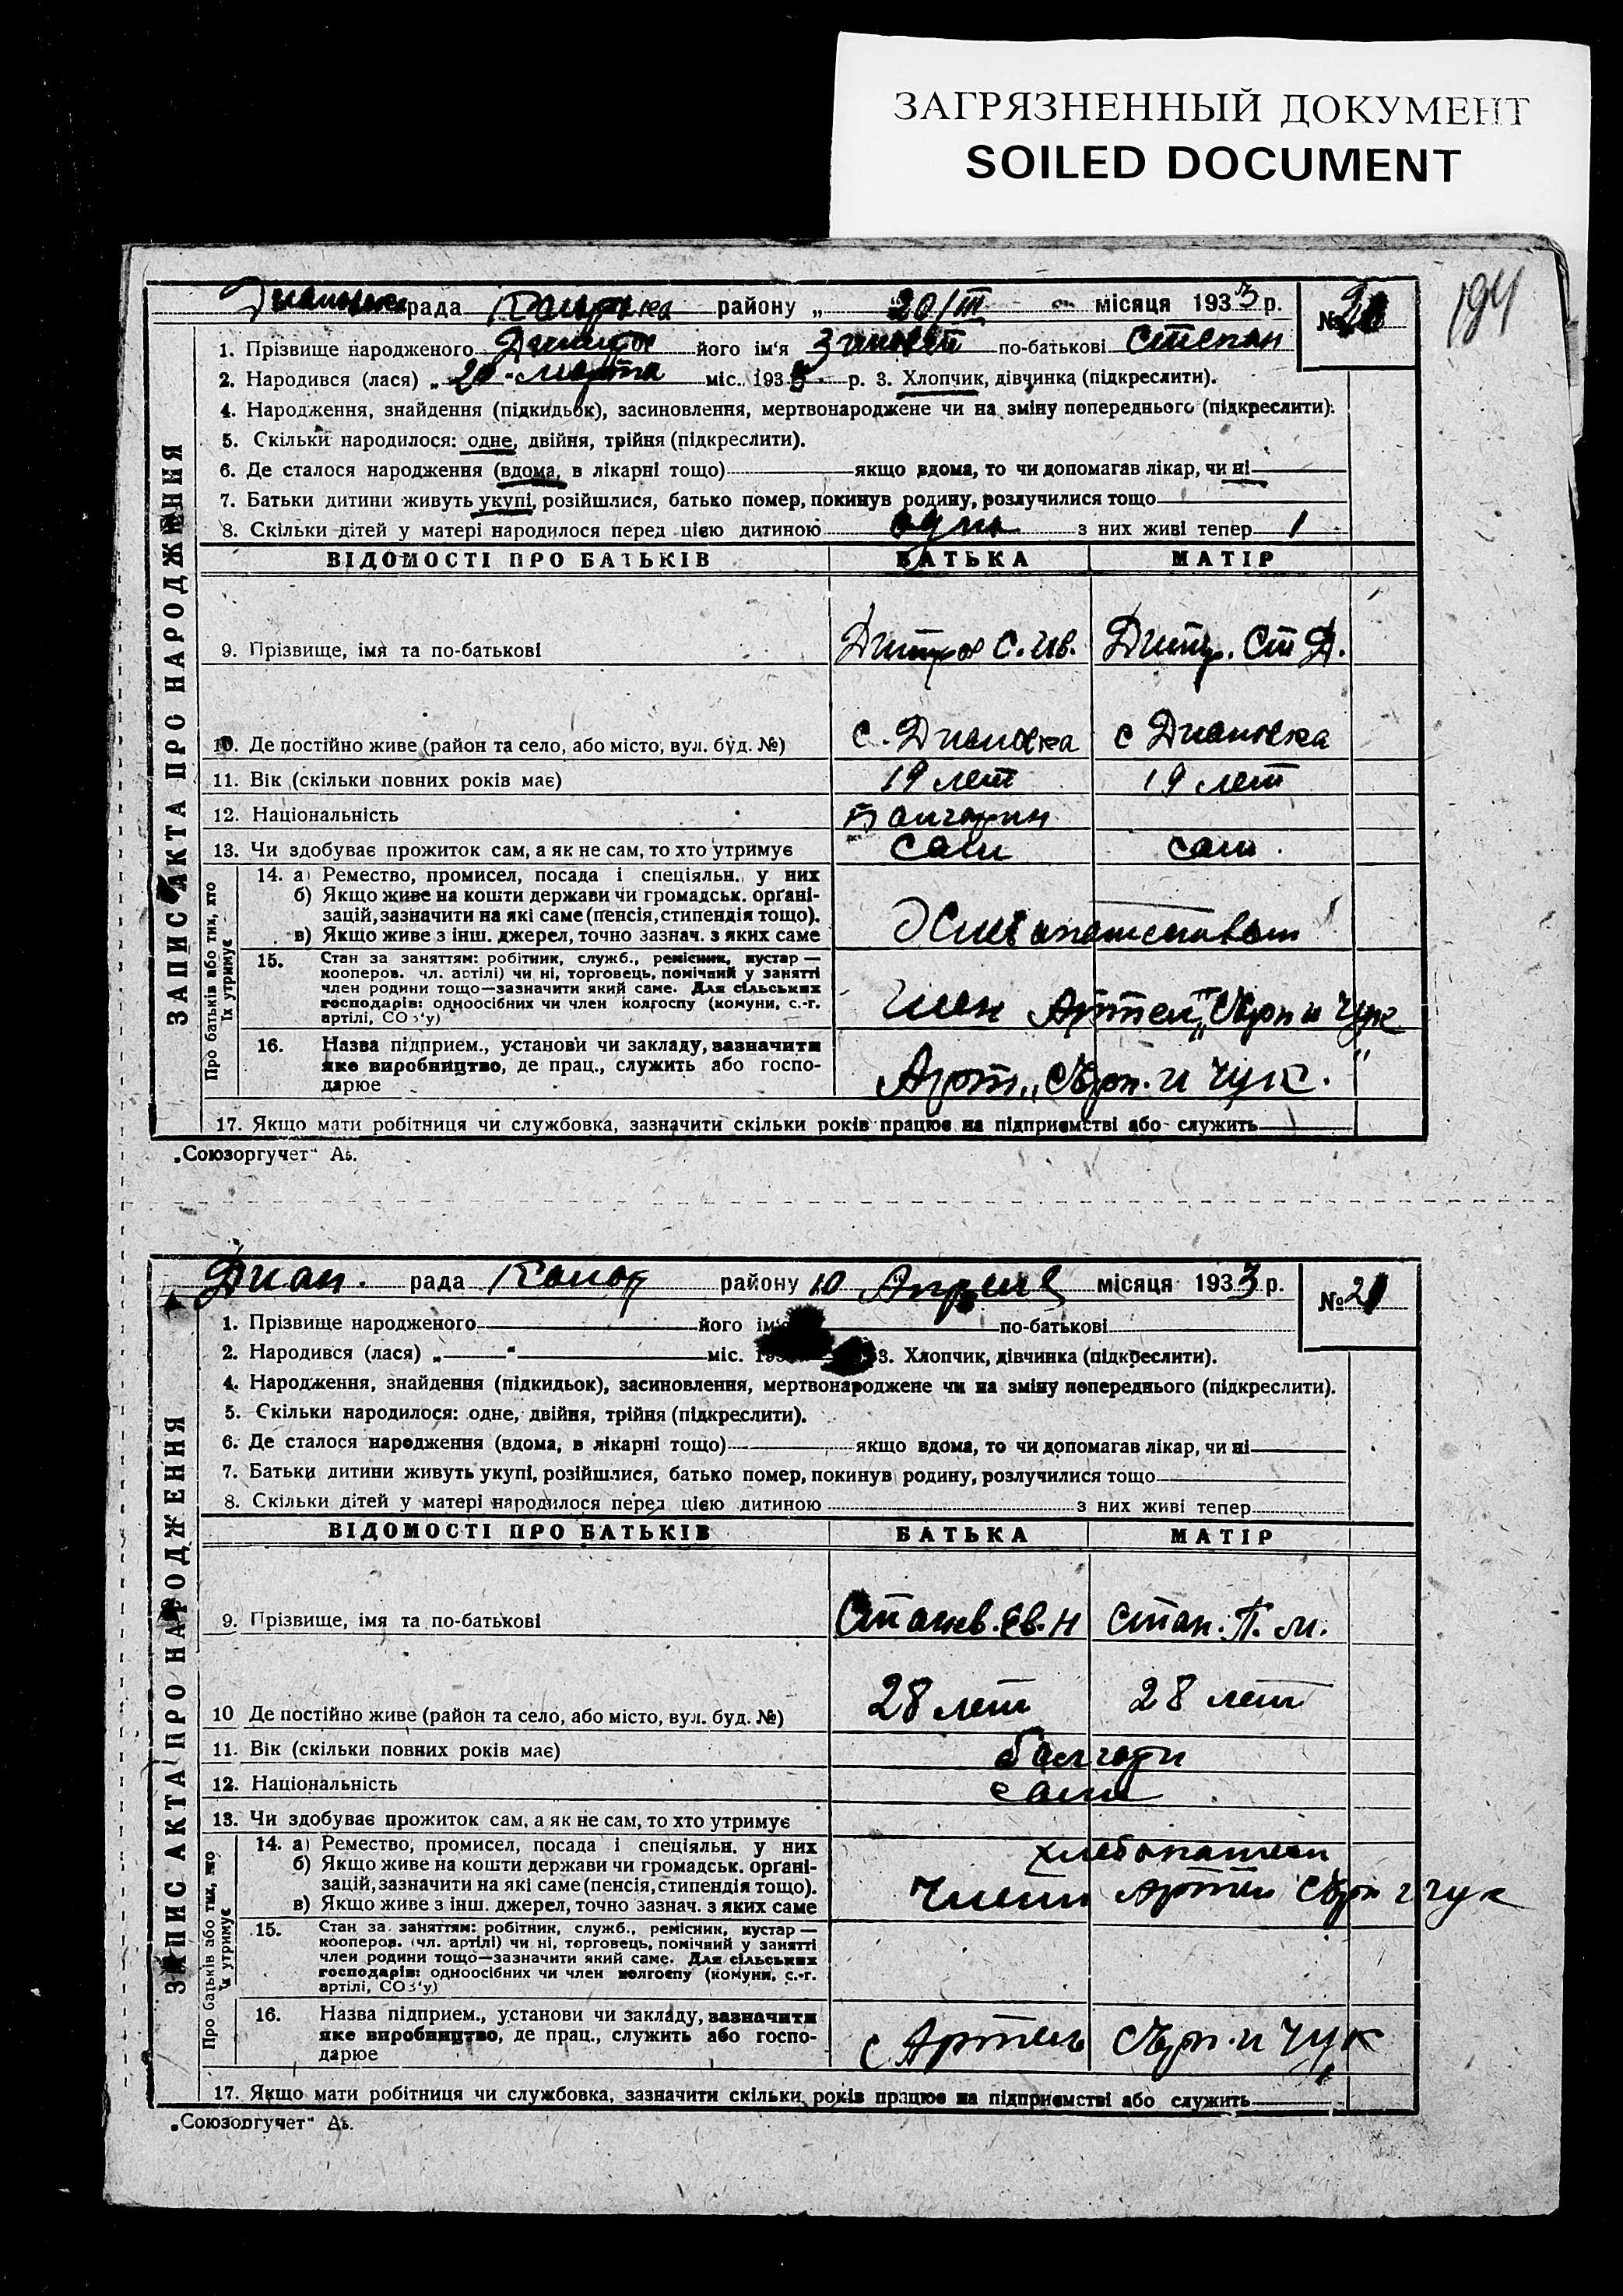 ЗАГРЯЗНЕННЫЙ ДОКУМЕНТ
SOILED DOCUMENT
194
рада району „ 20/III місяця 1933 р. №
1. Прізвище народженого його ім'я по-батькові Степан
2. Народився (лася) „ 20 " марта міс. 193 р. 3. Хлопчик, дівчинка (підкреслити).
4. Народження, знайдення (підкидьок), засиновлення, мертвонароджене чи на зміну попереднього (підкреслити).
5. Скільки народилося: одне, двійня, трійня (підкреслити).
6. Де сталося народження (вдома, в лікарні тощо) якщо вдома, то чи допомагав лікар, чи ні
7. Батьки дитини живуть укупі, розійшлися, батько помер, покинув родину, розлучилися тощо
8. Скільки дітей у матері народилося перед цією дитиною один з них живі тепер 1
ВІДОМОСТІ ПРО БАТЬКІВ БАТЬКА МАТІР
9. Прізвище, імя та по-батькові С. Ив. Дмитр. Ст Д.
10. Де постійно живе (район та село, або місто, вул. буд. №) с. Диановка с Диановка
11. Вік (скільки повних років має) 19 лет 19 лет
12. Національність Болгарин
13. Чи здобуває прожиток сам, а як не сам, то хто утримує сам сам
14. а) Ремество, промисел, посада і спеціяльн. у них
б) Якщо живе на кошти держави чи громадськ. організацій, зазначити на які саме (пенсія, стипендія тощо).
в) Якщо живе з інш. джерел, точно зазнач. з яких саме
15. Стан за заняттям: робітник, служб., ремісник, кустар —
кооперов. чл. артілі) чи ні, торговець, помічний у занятті
член родини тощо—зазначити який саме. Для сільських
господарів: одноосібних чи член колгоспу (комуни, с.-г.
артілі, СОЗ'у) член Артел „Серп и Чук
16. Назва підприєм., установи чи закладу, зазначити
яке виробництво, де прац., служить або госпо-
дарює Арт. „Серп. и Чук."
17. Якщо мати робітниця чи службовка, зазначити скільки років працює на підприємстві або служить
ЗАПИС АКТА ПРО НАРОДЖЕННЯ
Про батьків або тих, хто їх утримує
„Союзоргучет" Аь.
Диан. рада району 10 Апреля місяця 1933 р. № 21
1. Прізвище народженого його ім' по-батькові
2. Народився (лася) „ " міс. 3. Хлопчик, дівчинка (підкреслити).
4. Народження, знайдення (підкидьок), засиновлення, мертвонароджене чи на зміну попереднього (підкреслити).
5. Скільки народилося: одне, двійня, трійня (підкреслити).
6. Де сталося народження (вдома, в лікарні тощо) якщо вдома, то чи допомагав лікар, чи ні
7. Батьки дитини живуть укупі, розійшлися, батько помер, покинув родину, розлучилися тощо
8. Скільки дітей у матері народилося перед цією дитиною з них живі тепер
ВІДОМОСТІ ПРО БАТЬКІВ БАТЬКА МАТІР
9. Прізвище, імя та по-батькові Ев. Н Стан. П. М.
10 Де постійно живе (район та село, або місто, вул. буд. №) 28 лет 28 лет
11. Вік (скільки повних років має) болгари
12. Національність сами
13. Чи здобуває прожиток сам, а як не сам, то хто утримує
14. а) Ремество, промисел, посада і спеціяльн. у них
б) Якщо живе на кошти держави чи громадськ. організацій, зазначити на які саме (пенсія, стипендія тощо).
в) Якщо живе з інш. джерел, точно зазнач. з яких саме Серп и чук
15. Стан за заняттям: робітник, служб., ремісник, кустар —
кооперов. (чл. артілі) чи ні, торговець, помічний у занятті
член родини тощо—зазначити який саме. Для сільських
господарів: одноосібних чи член колгоспу (комуни, с.-г.
артілі, СОЗ'у)
16. Назва підприєм., установи чи закладу, зазначити
яке виробництво, де прац., служить або госпо-
дарює Артель Серп. и Чук
17. Якщо мати робітниця чи службовка, зазначити скільки років працює на підприємстві або служить
ЗАПИС АКТА ПРО НАРОДЖЕННЯ
Про батьків або тих, хто їх утримує
„Союзоргучет" Аь.